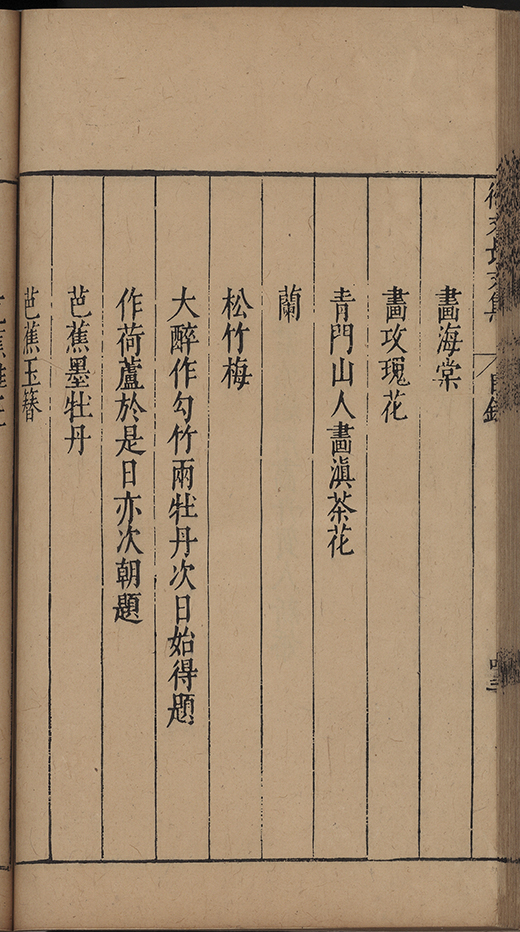 徐文長文集 目錄
畫海棠
畫玫瑰花
青門山人畫滇茶花
蘭
松竹梅
大醉作勾竹兩牡丹次日始得題
作荷蘆於是日亦次朝題
芭蕉墨牡丹
芭蕉玉簪